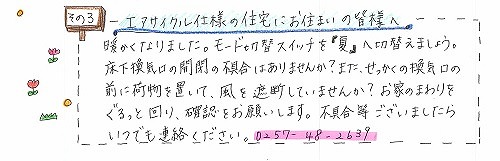 その3
エアサイクル仕様の住宅にお住まいの皆様へ
暖かくなりました。モード切替スイッチを『夏』へ切替えましょう。
床下換気口の開閉の不具合はありませんか?また、せっかくの換気口の
前に荷物を置いて、風を遮断していませんか?お家のまわりを
ぐるっと回り、確認をお願いします。不具合等ございましたら
いつでも連絡ください。0257-48-2639